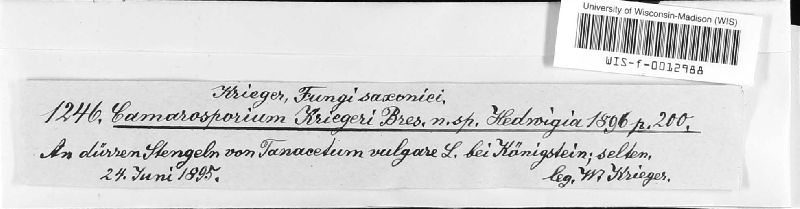 University of Wisconsin-Madison (WIS)
WIS-f-0012988
Krieger, Fungi saxonici.
1246. Camarosporium Kriegeri Bres. n. sp. Hedwigia 1896 p. 200.
An dürren Stengeln von Tanacetum vulgare L. bei Königstein; selten.
24. Juni 1895.
leg. W. Krieger.